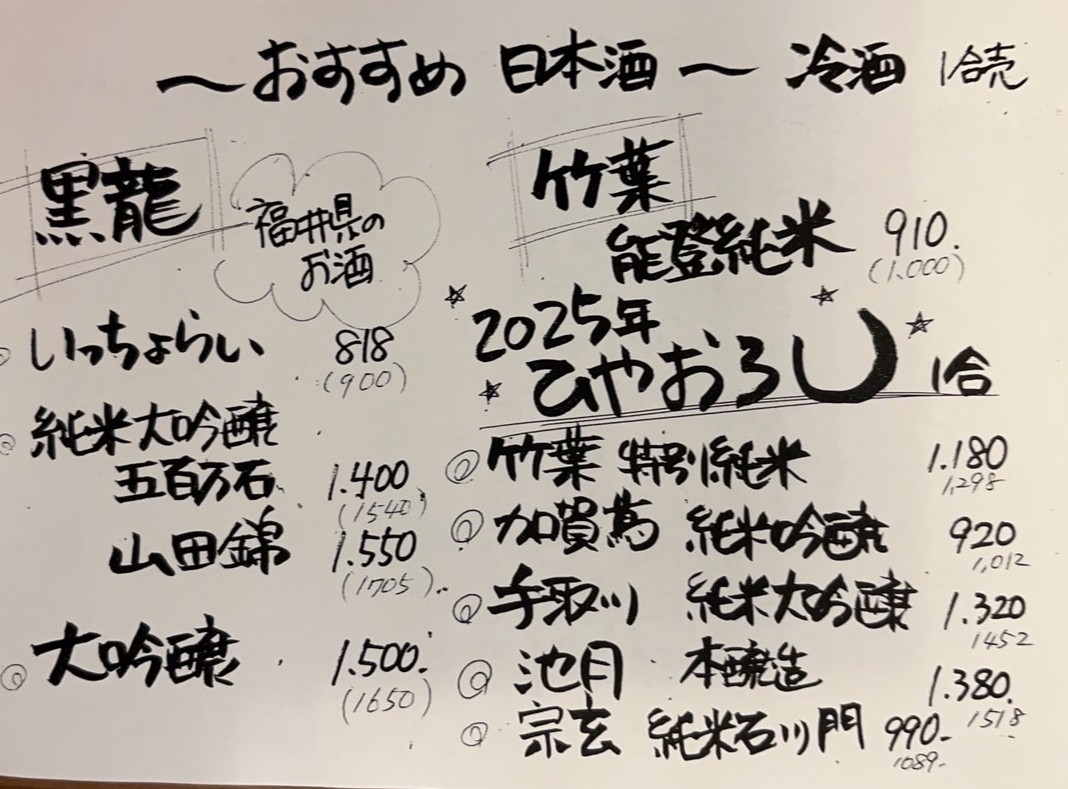 〜おすすめ 日本酒〜 冷酒 1合売
黒龍
福井県の
お酒
いっちょらい 818
(900)
純米大吟醸
五百万石 1.400
(1540)
山田錦 1.550
(1705)
大吟醸 1.500.
(1650)
竹葉
能登純米 910.
(1.000)
☆ 2025年 ☆
☆ ひやおろし ☆ 1合
◎ 竹葉 特別純米 1.180
1,298
◎ 加賀鳶 純米吟醸 920
1,012
◎ 手取川 純米大吟醸 1.320
1452
◎ 池月 本醸造 1.380.
1518
◎ 宗玄 純米石川門 990-
1089-